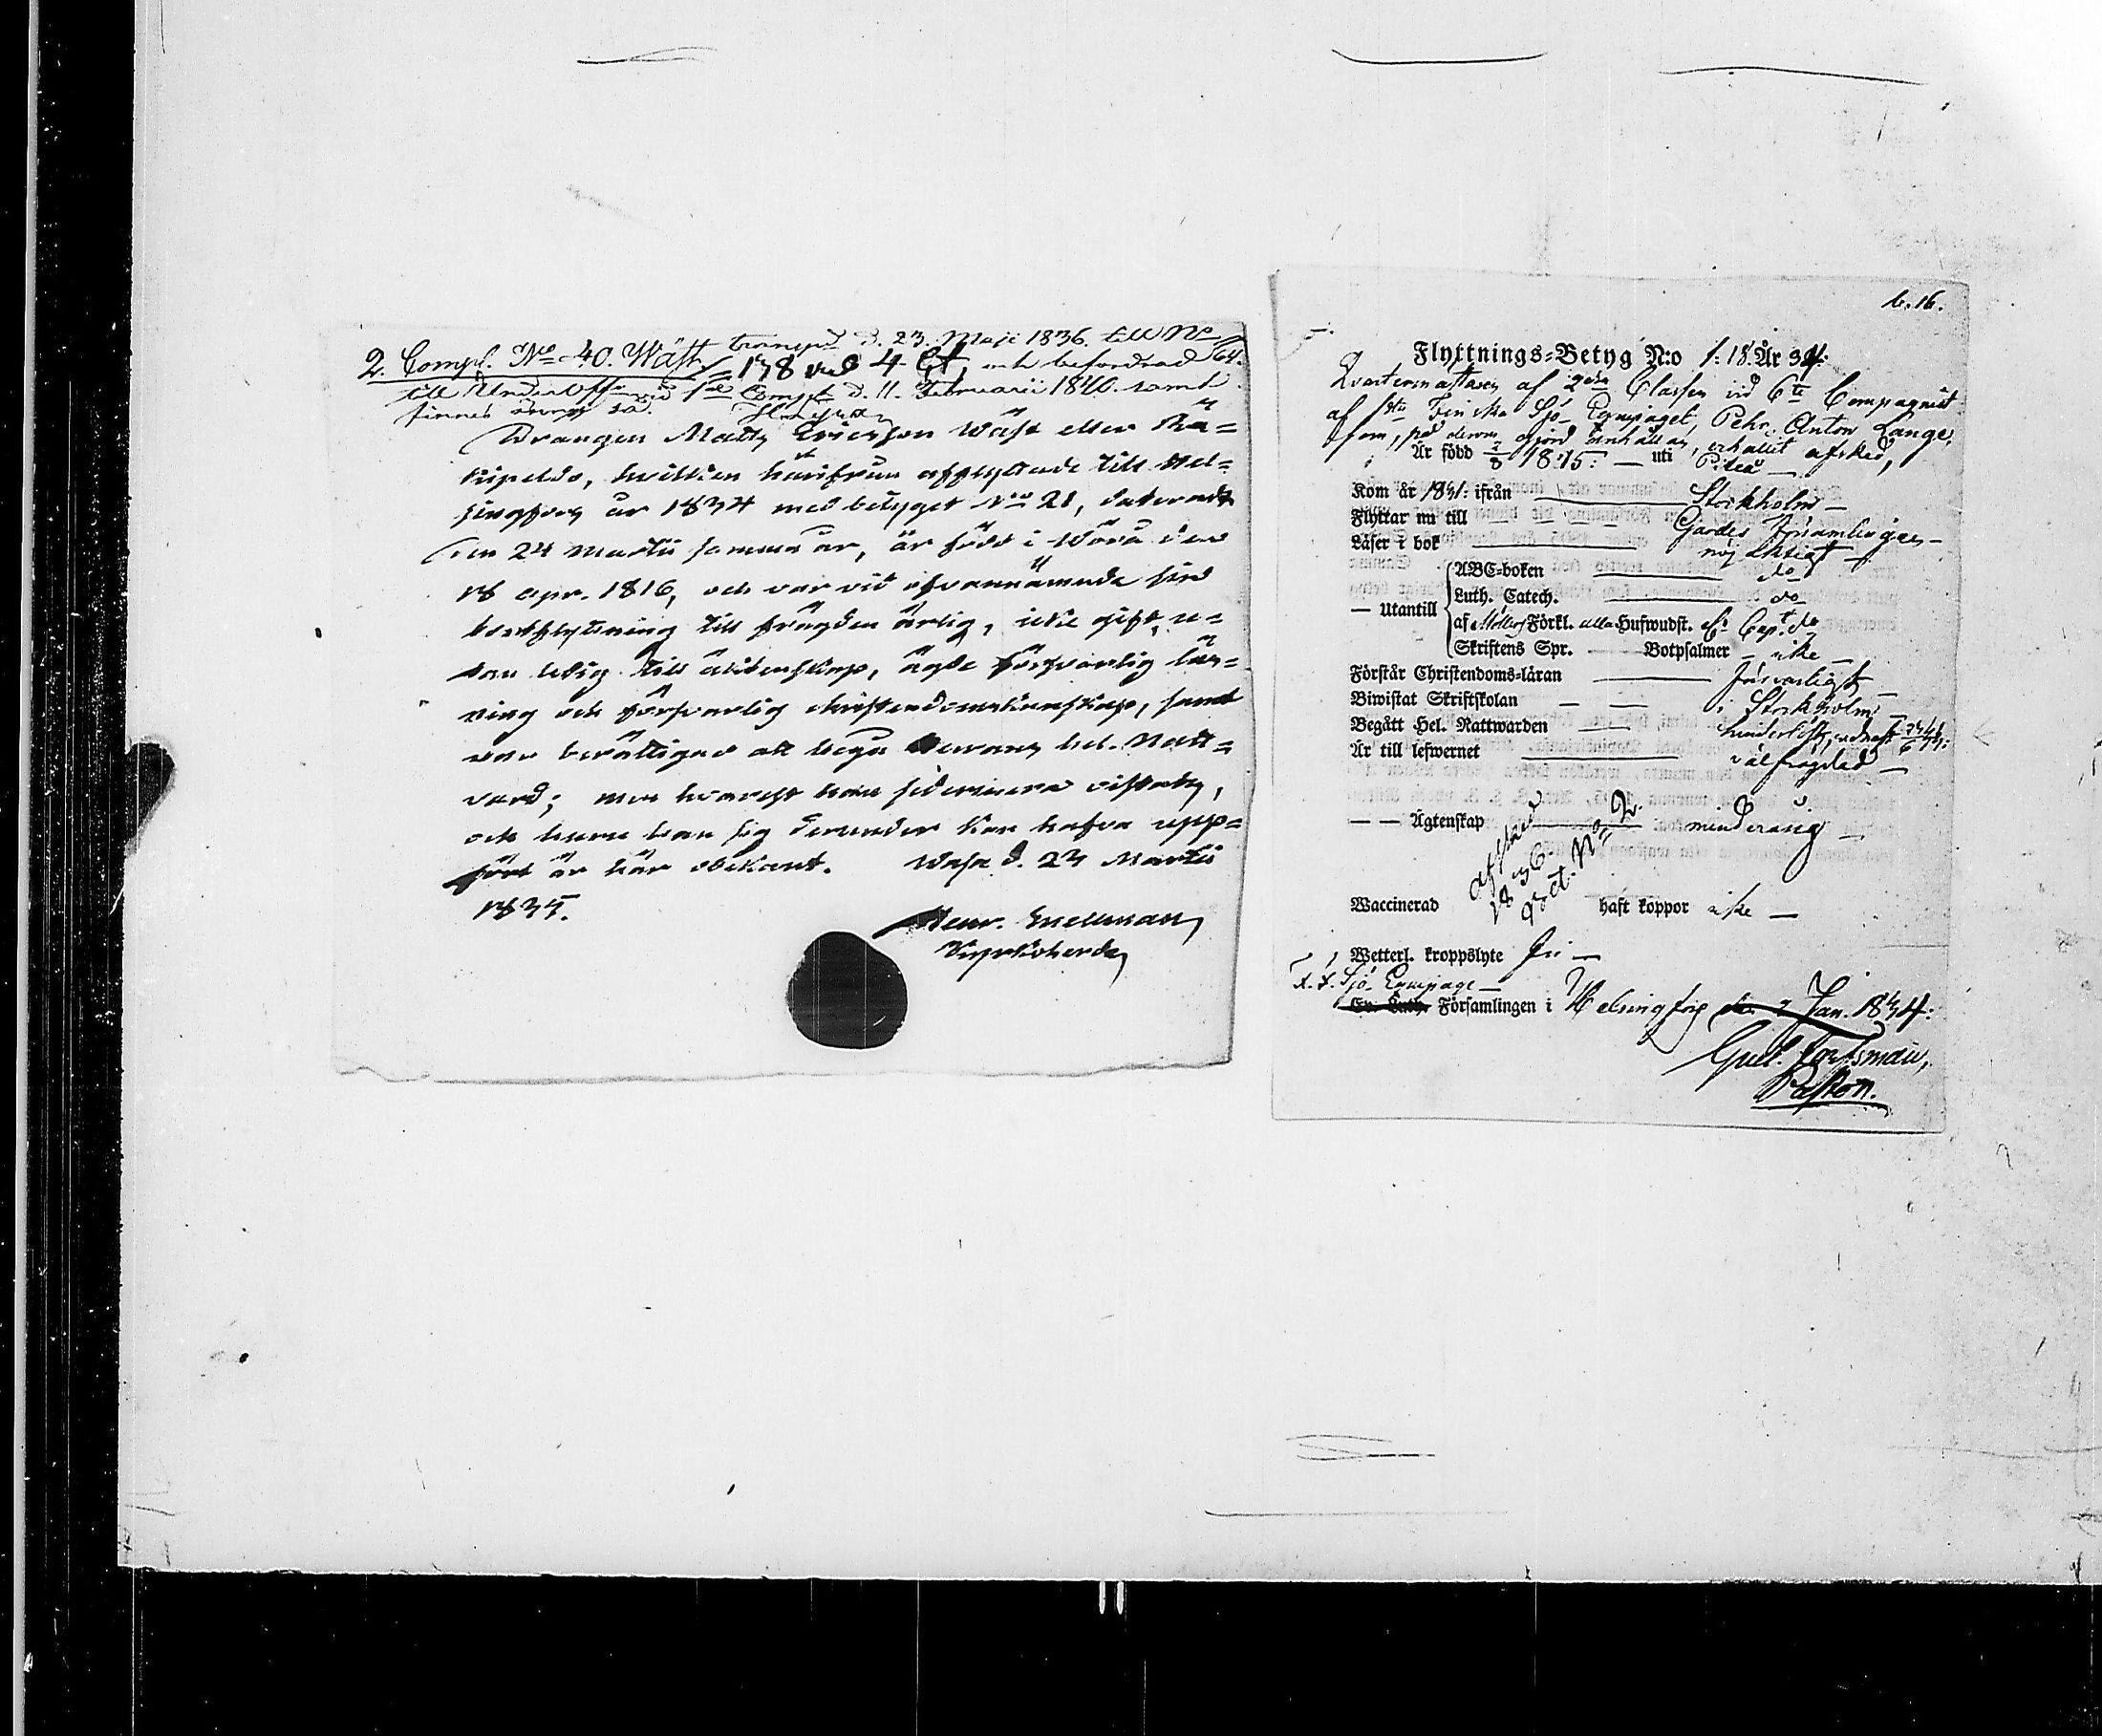 transnpd d. 23. Maji 1836. till No 64.
2. Comp. No 40. Wäst, 138 und 4 och befordrad
till UnderOffr vid 1sta Comp. d. 11. Februarii 1840. samt
finnes
Drängen Matts Ericsson Wäst eller Rä-
kipeldo, hvilken härifrån afflyttade till Hel-
singfors år 1834 med betyget No 21, dateradt
den 24 Martii samma år, är född i Wörå den
18 apr. 1816, och var vid ofvannämnde sin
bortflyttning till frägden ärlig, icke gift, u-
tan ledig till äktenskap, ägde försvarlig läs-
ning och försvarlig christendomskunskap, samt
var berättigad att begå Herrans hel. Natt-
vard; men hvarest han sedermera vistats,
och huru han sig derunder kan hafva upp-
fört är här obekant. Wasa d. 23 Martii
1835.
Henr. Snellman
Kyrkoherde
b. 16.
Flyttnings-Betyg N:o 1: 18. År 34:
Quartermästaren af 2dra Classen vid 6te Compagniet
af 1sta Finska Sjö-Equipaget, Pehr Anton Lange,
som, på derom gjord anhållan, erhållit afsked,
Är född 1/8 1815: — uti Piteå —
Kom år 1831: ifrån Stockholm —
Flyttar nu till Gardes Församlingen —
Läser i bok nöjaktigt —
— Utantill ABC-boken do
Luth. Catech. do
af Möllers Förkl. alla Hufwudst.
Skriftens Spr. — Botpsalmer — icke —
Förstår Christendoms-läran försvarligt —
Biwistat Skriftskolan i Stockholm —
Begått Hel. Nattwarden hinderlöst, sednast
Är till lefwernet välfrägdad —
— — Ägtenskap minderårig —
Afsked
1836
Act. No 2.
Waccinerad haft koppor icke —
Wetterl. kroppslyte fri —
F. F. Sjö-Equipage —
Ev. Luth. Församlingen i Helsingfors den 7 Jan. 1834:
Gust. Fortsman,
Pastor.